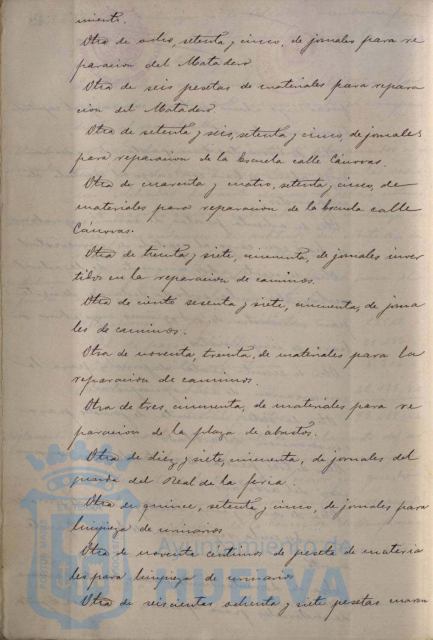 miento.
Otra de ocho, setenta y cinco, de jornales para re
paración del Matadero
Otra de seis pesetas de materiales para repara
cion del Matadero.
Otra de setenta y seis, setenta y cinco, de jornales
para reparacion de la Escuela calle Cánovas.
Otra de cuarenta y cuatro, setenta y cinco, de
materiales para reparacion de la Escuela calle
Cánovas.
Otra de treinta y siete, cincuenta, de jornales inver
tidos en la reparacion de caminos.
Otra de ciento sesenta y siete, cincuenta, de jorna
les de caminos.
Otra de noventa, treinta, de materiales para la
reparacion de caminos.
Otra de tres, cincuenta, de materiales para re
paracion de la plaza de abastos.
Otra de diez y siete, cincuenta, de jornales del
guarda del Real de la feria.
Otra de quince, setenta y cinco, de jornales para
limpieza de urinarios
Otra de noventa centimos de peseta de materia
les para limpieza de urinarios
Otra de seiscientas ochenta y siete pesetas
Ayuntamiento de
HUELVA